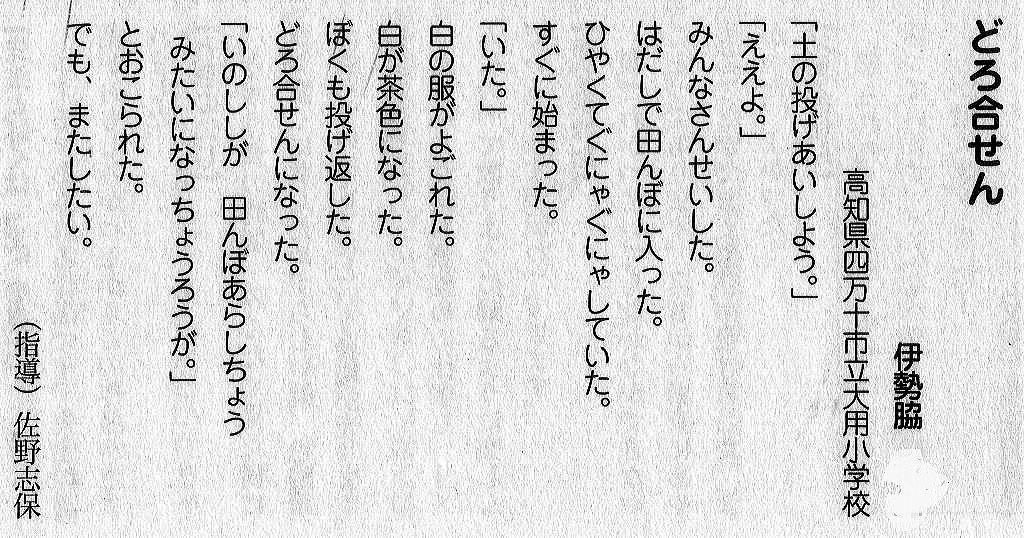 どろ合せん
伊勢脇
高知県四万十市立大用小学校
「土の投げあいしよう。」
「ええよ。」
みんなさんせいした。
はだしで田んぼに入った。
ひやくてぐにゃぐにゃしていた。
すぐに始まった。
「いた。」
白の服がよごれた。
白が茶色になった。
ぼくも投げ返した。
どろ合せんになった。
「いのししが　田んぼあらしちょう
みたいになっちょうろうが。」
とおこられた。
でも、またしたい。
（指導）佐野志保